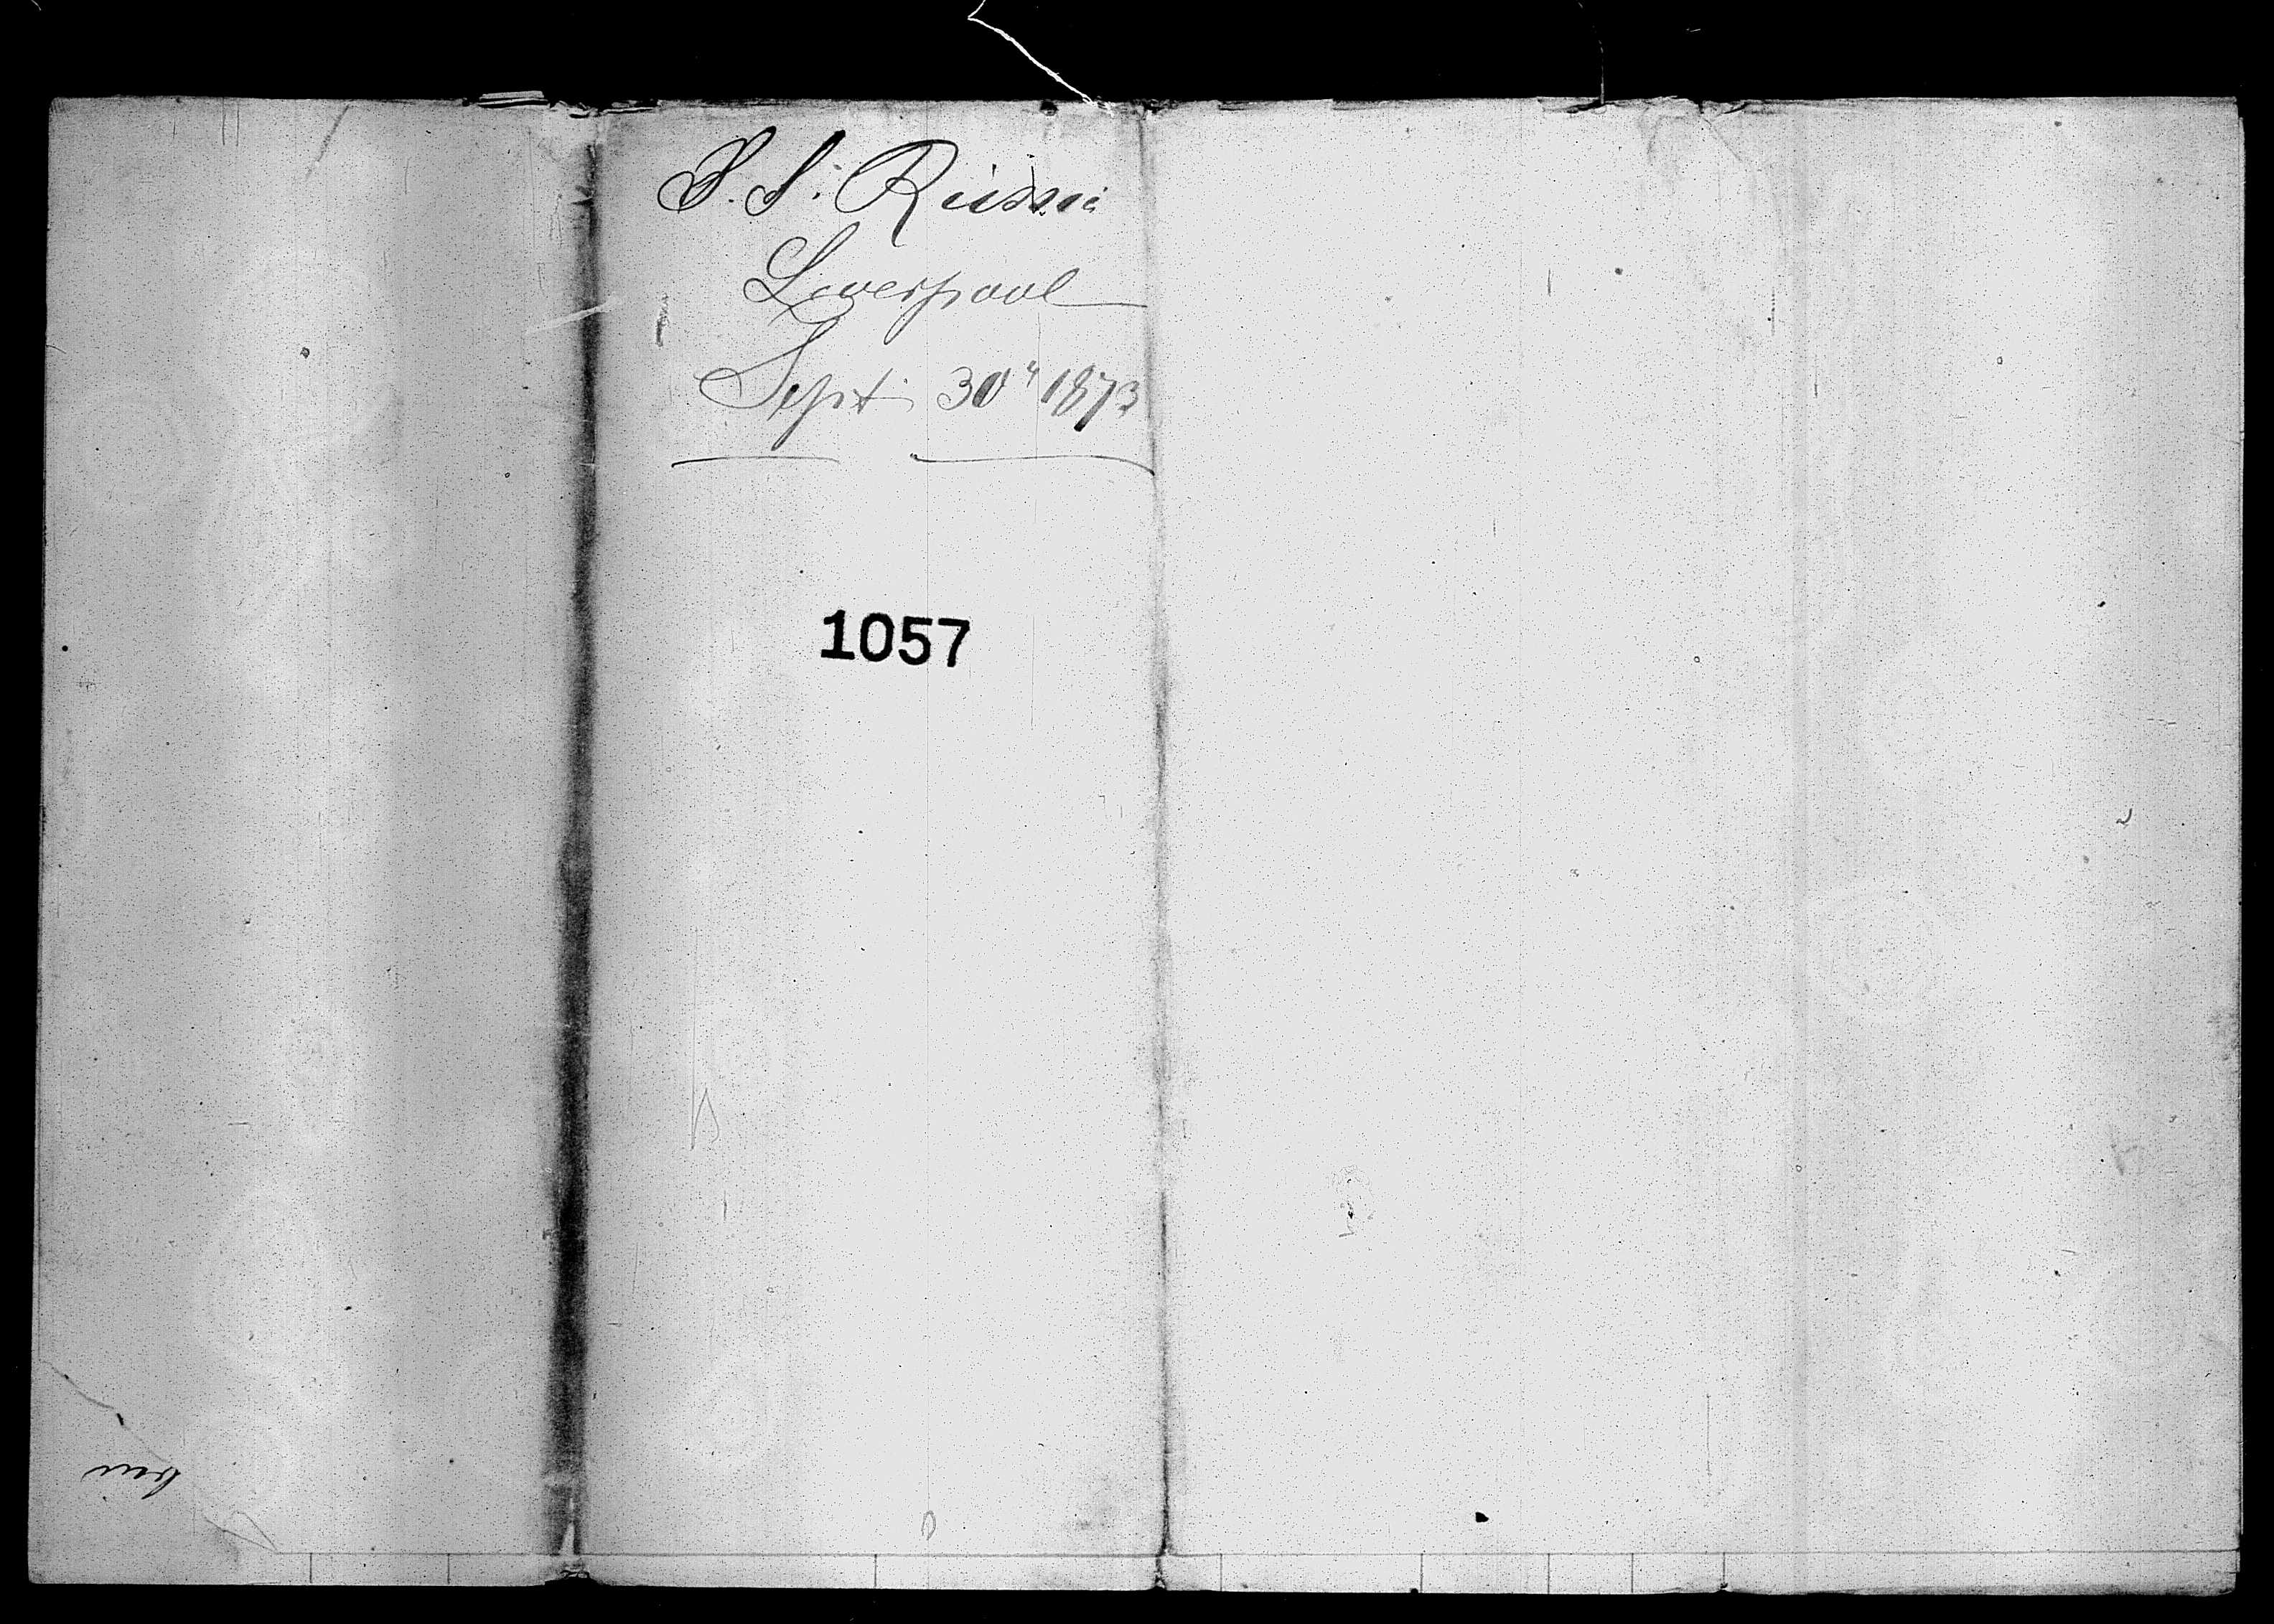 S. S. Russia
Liverpool
Sept. 30" 1873
1057